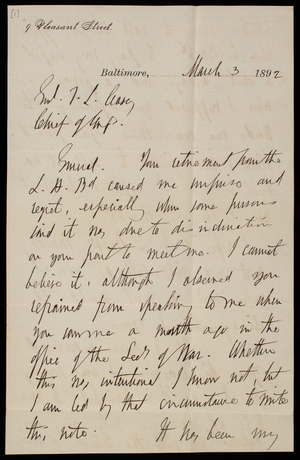 9 Pleasant Street.
Baltimore, March 3 1892
Genl. T. L. Casey
Chief of Engs.
General. Your retirement from the
L. H. Bd caused me surprise and
regret, especially when some persons
said it was due to disinclination
on your part to meet me. I cannot
believe it, although I observed you
refrained from speaking to me when
you saw me a month ago in the
office of the Secy of War. Whether
this was intentional I know not, but
I am led by that circumstance to write
this note. It has been my